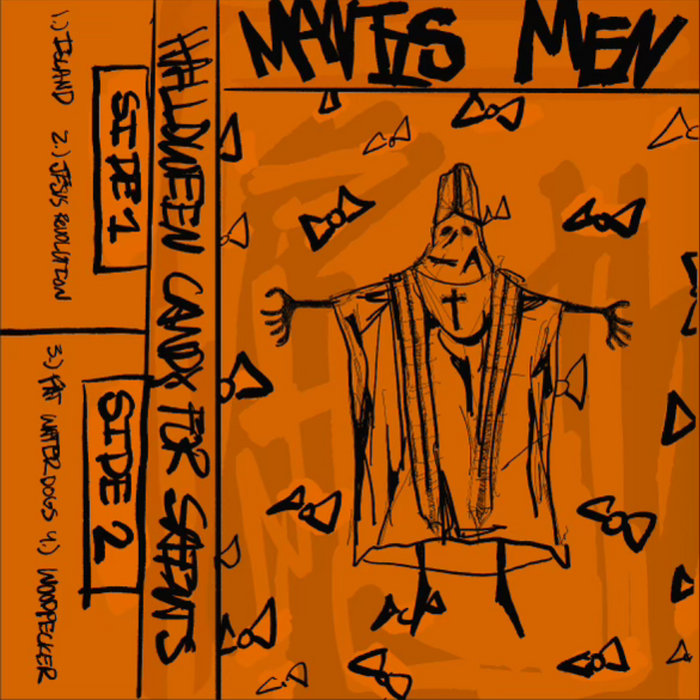 MANTIS MEN
HALLOWEEN CANDY FOR SAINTS
SIDE 1
1.) ISLAND 2.) JESUS REVOLUTION
SIDE 2
3.) FAT WATER DOGS 4.) WOODPECKER